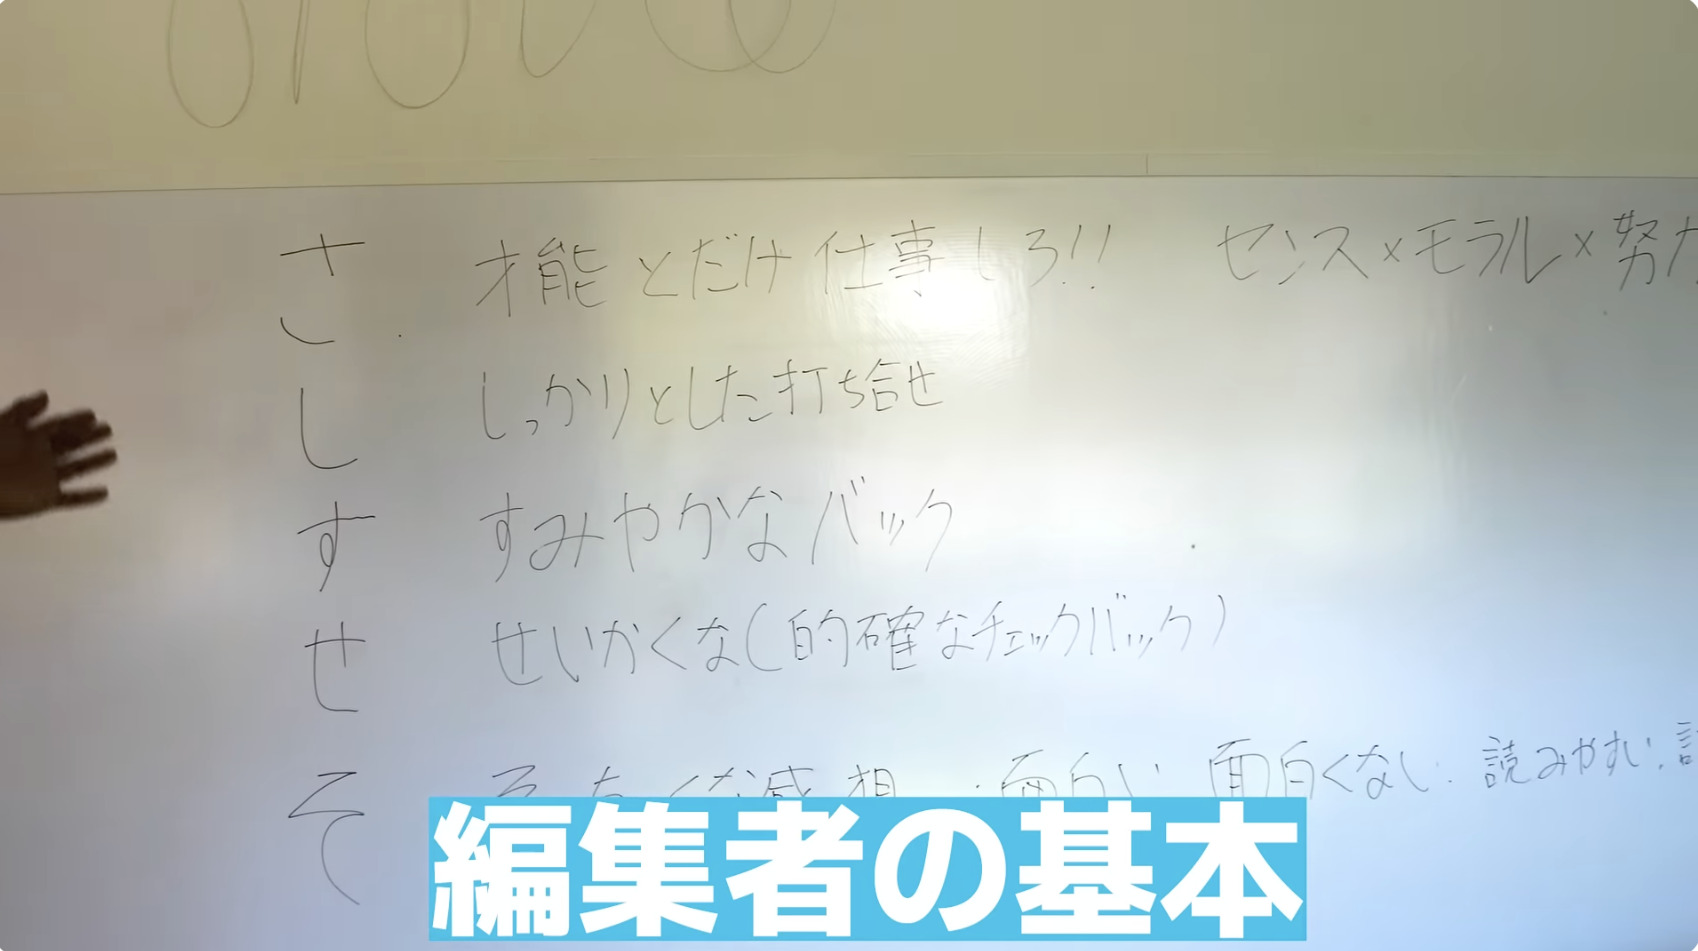 さ 才能とだけ仕事しろ!! センス×モラル×努力
し しっかりとした打ち合せ
す すみやかなバック
せ せいかくな(的確なチェックバック)
そ そっちょくな感想・面白い 面白くない. 読みやすい.
編集者の基本